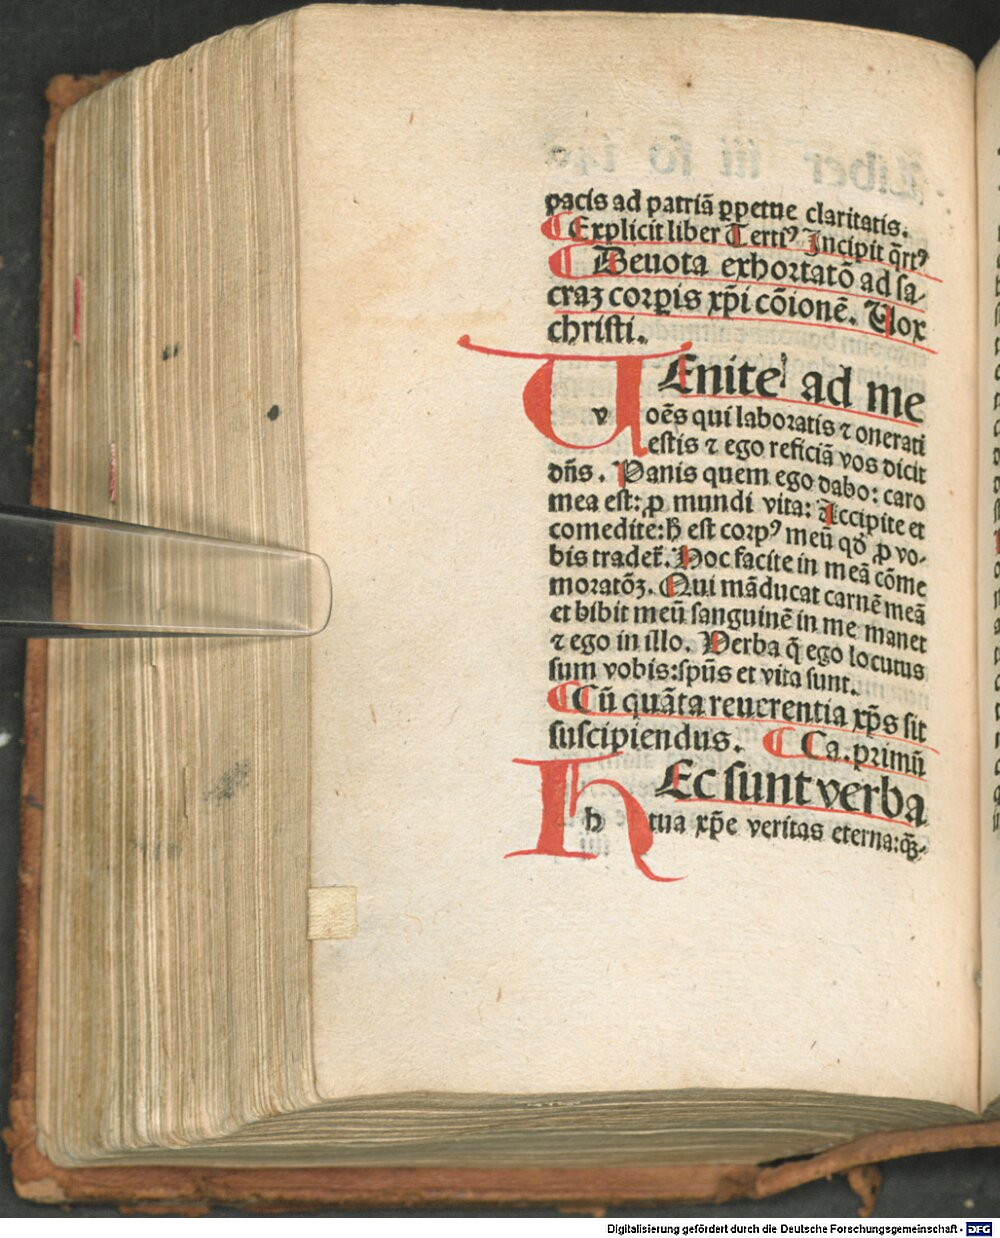 pacis ad patriā ꝑpetue claritatis.
¶ Explicit liber Tertiꝰ Incipit q̄rtꝰ
¶ Deuota exhortatō ad sa⸗
craꝫ corꝑis xp̄i cōionē. Uox
christi.
VEnite ad me
v oēs qui laboratis ⁊ onerati
estis ⁊ ego reficiā vos dicit
dn̄s. Panis quem ego dabo: caro
mea est: ꝓ mundi vita: Accipite et
comedite: h̄ est corpꝰ meū qd̄ ꝓ vo⸗
bis tradet̄. Hoc facite in meā cōme
moratōꝫ. Qui māducat carnē meā
et bibit meū sanguinē in me manet
⁊ ego in illo. Verba q̄ ego locutus
sum vobis: spūs et vita sunt.
¶ Cū quāta reuerentia xp̄s sit
suscipiendus. ¶ Ca. primū
HEc sunt verba
h tua xp̄e veritas eterna: qꝫ⸗
Digitalisierung gefördert durch die Deutsche Forschungsgemeinschaft - DFG